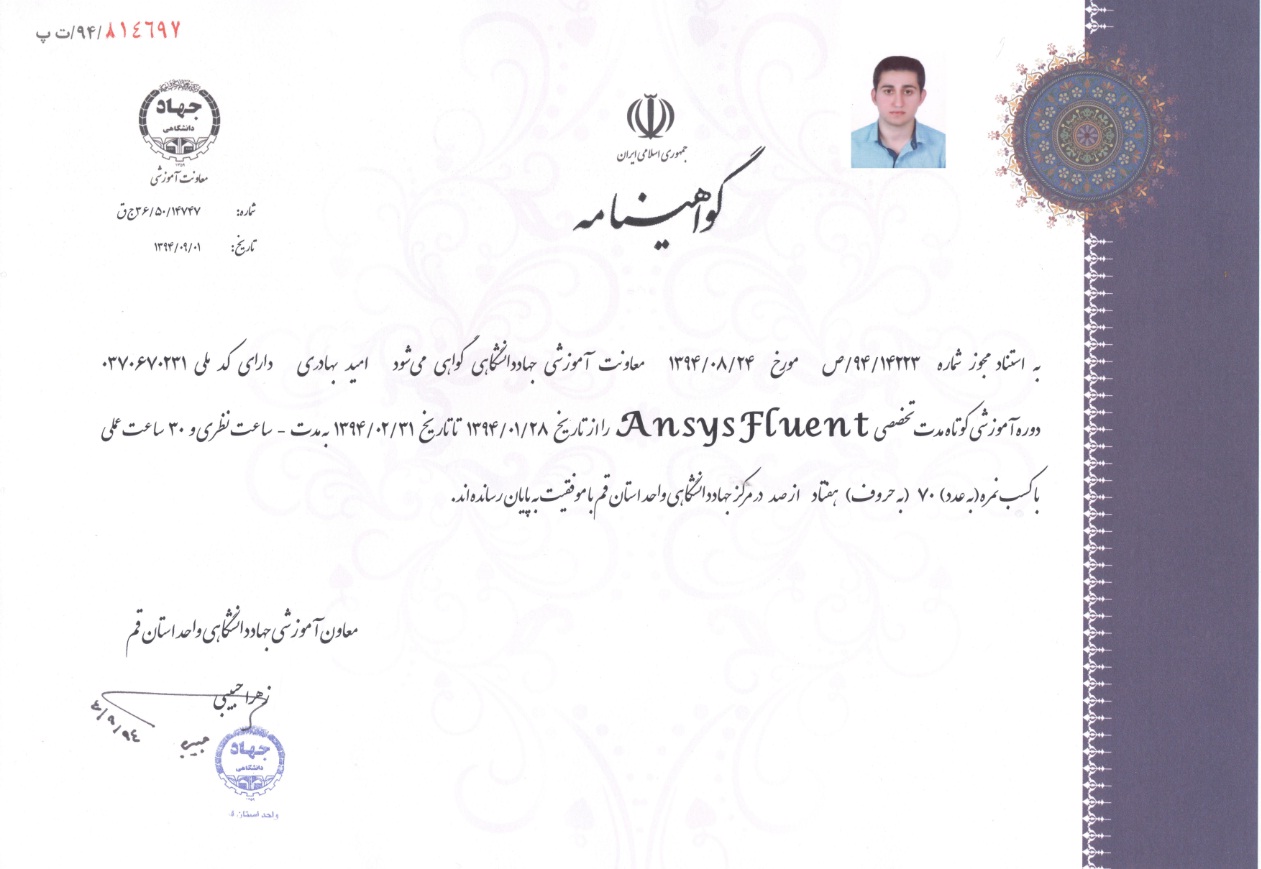 ۹۴/۸۱٤٦۹۷/ت پ
جهاد
دانشگاهی
۱۳۵۹
معاونت آموزشی
شماره: ۳۶/۵۰/۱۴۷۴۷/ج ق
تاریخ: ۱۳۹۴/۰۹/۰۱
جمهوری اسلامی ایران
گواهینامه
به استناد مجوز شماره ۹۴/۱۴۲۲۳/ص مورخ ۱۳۹۴/۰۸/۲۴ معاونت آموزشی جهاددانشگاهی گواهی می‌شود امید بهادری دارای کد ملی ۰۳۷۰۶۷۰۲۳۱
دوره آموزشی کوتاه مدت تخصصی AnsysFluent را از تاریخ ۱۳۹۴/۰۱/۲۸ تا تاریخ ۱۳۹۴/۰۲/۳۱ به مدت - ساعت نظری و ۳۰ ساعت عملی
با کسب نمره (به عدد) ۷۰ (به حروف) هفتاد از صد در مرکز جهاددانشگاهی واحد استان قم با موفقیت به پایان رسانده اند.
معاون آموزشی جهاددانشگاهی واحد استان قم
زهرا حبیبی
جهاد
دانشگاهی
واحد استان